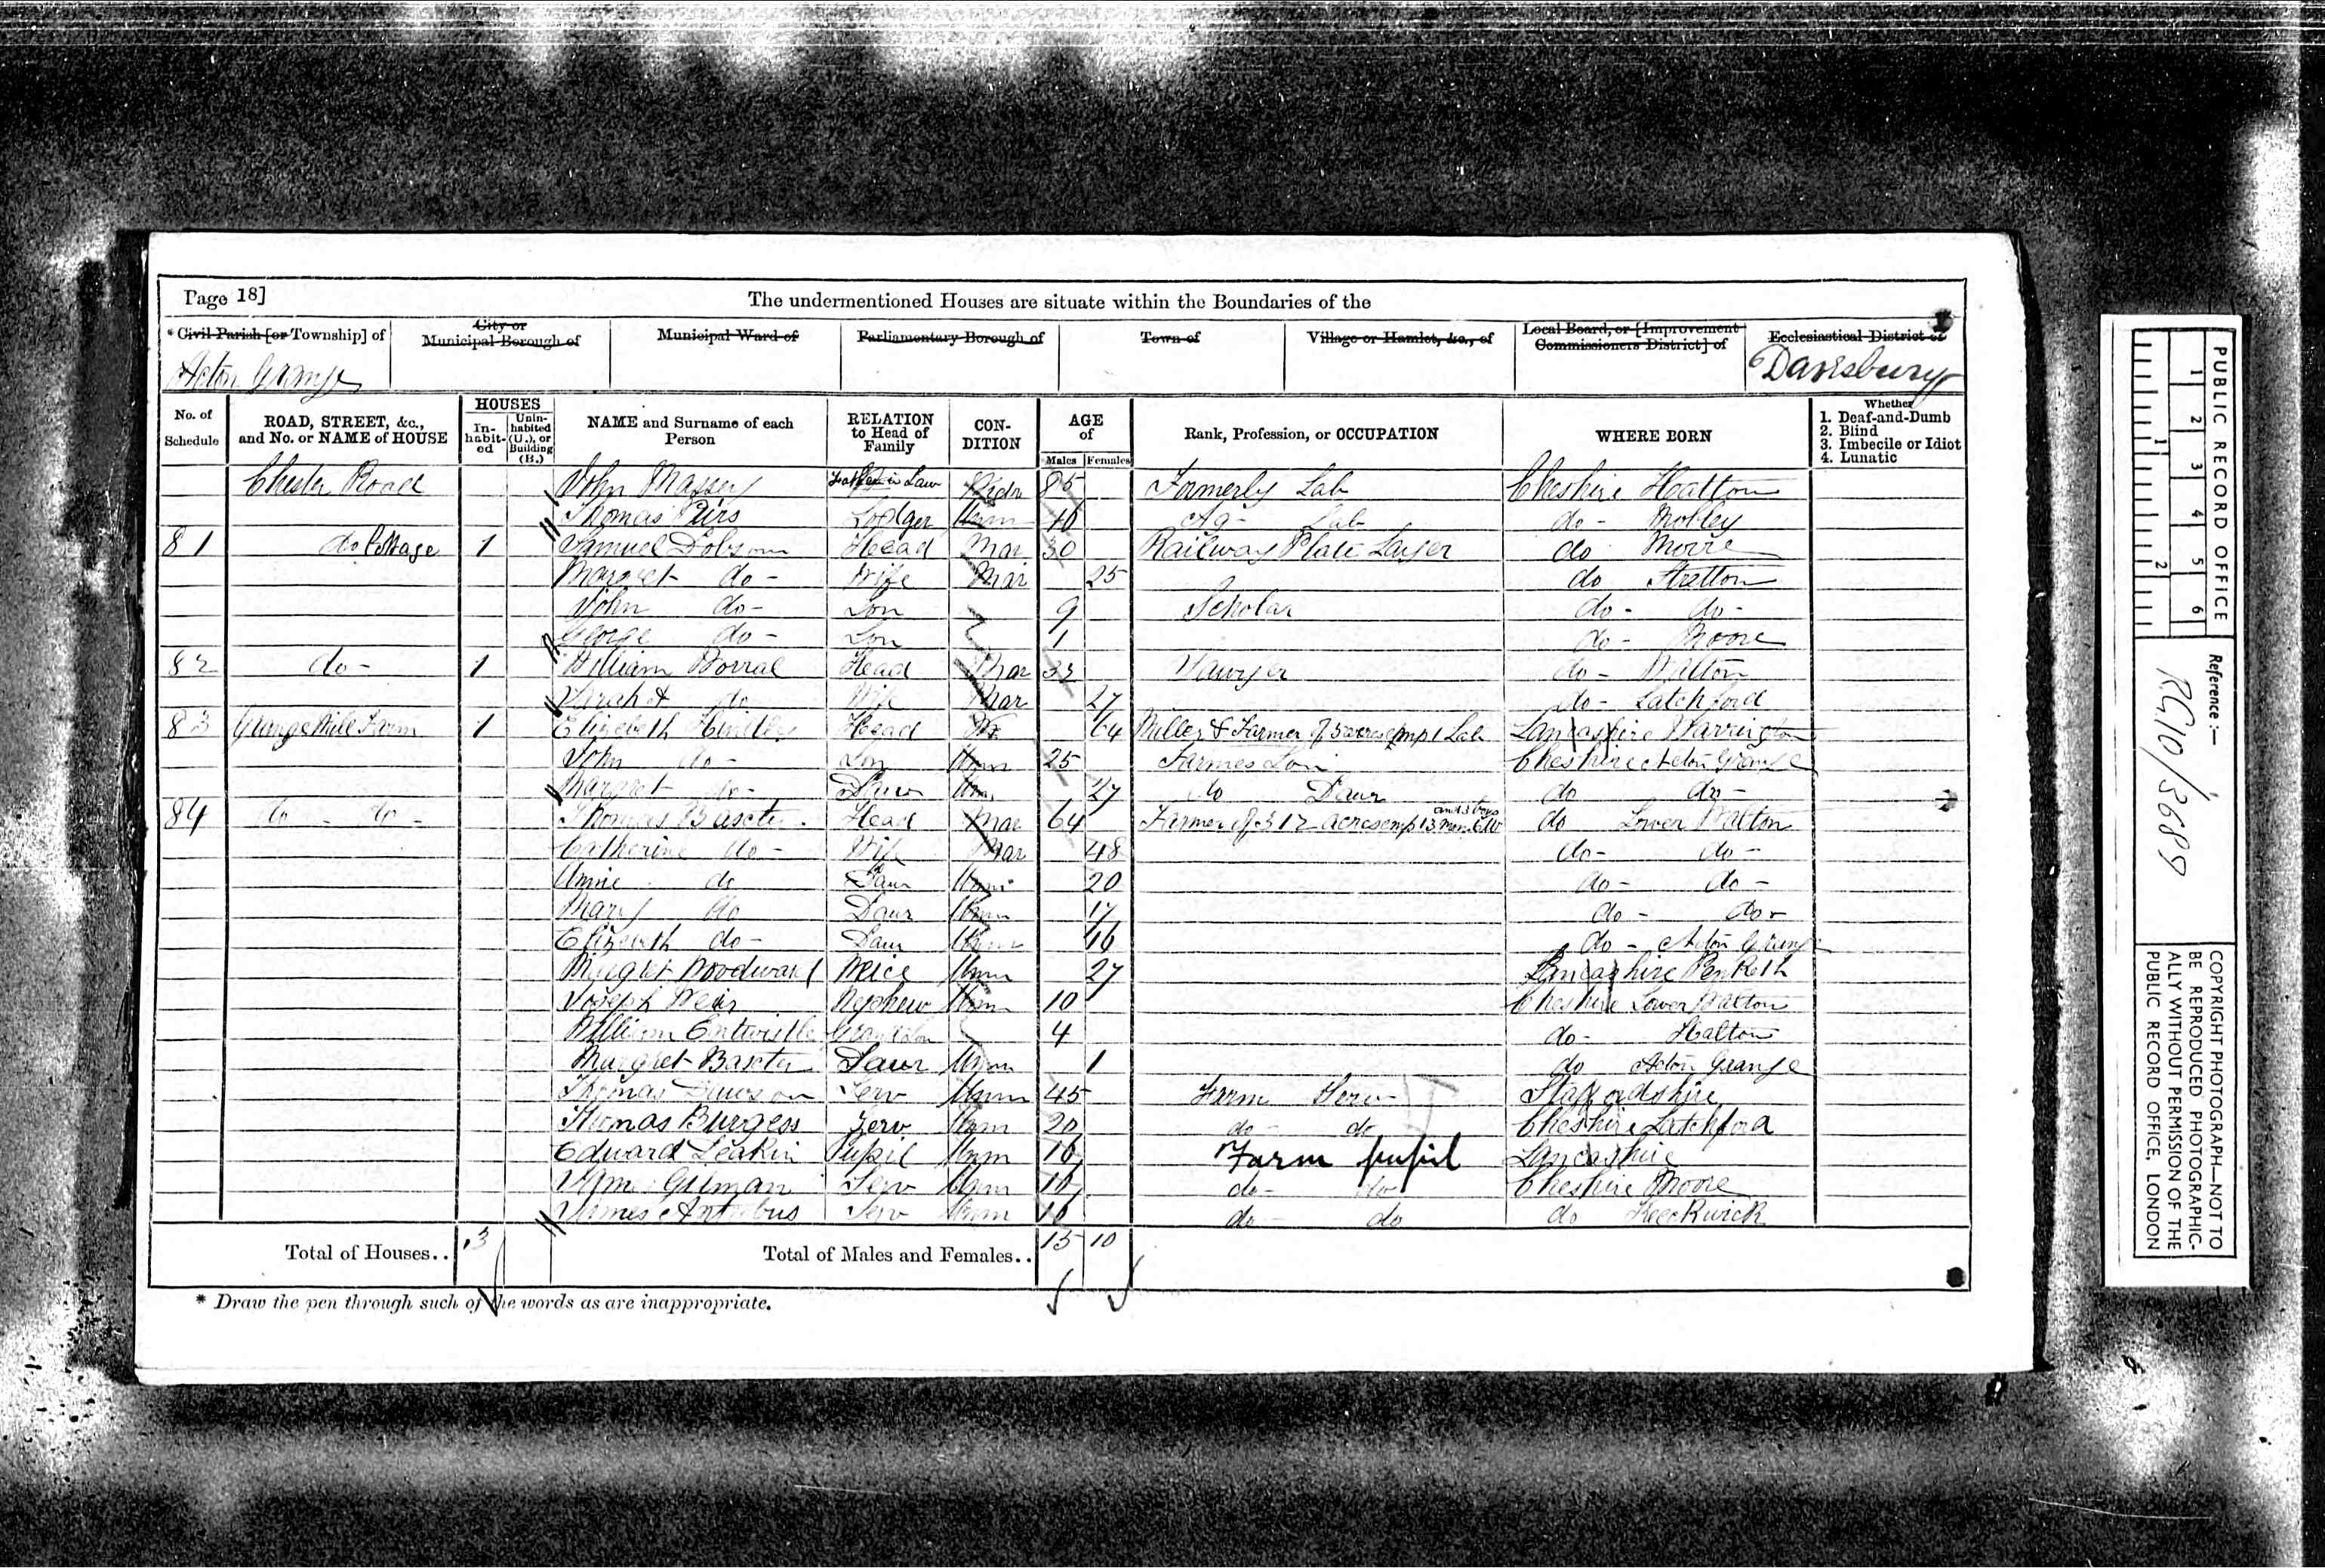 Page 18]
The undermentioned Houses are situate within the Boundaries of the
* Civil Parish [or Township] of
City or Municipal Borough of
Municipal Ward of
Parliamentary Borough of
Town of
Village or Hamlet, &c., of
Local Board, or [Improvement Commissioners District] of
Ecclesiastical District of
Acton Grange
Daresbury
No. of Schedule
ROAD, STREET, &c., and No. or NAME of HOUSE
HOUSES
In-habit-ed
Unin-habited (U.), or Building (B.)
NAME and Surname of each Person
RELATION to Head of Family
CON-DITION
AGE of
Males Females
Rank, Profession, or OCCUPATION
WHERE BORN
Whether
1. Deaf-and-Dumb
2. Blind
3. Imbecile or Idiot
4. Lunatic
Chester Road John Massey Father in Law Widr 85 Formerly Lab Cheshire Hatton
Thomas Lodger Unm Ag Lab do - Mobley
81 do Cottage 1 Samuel Dobson Head Mar 30 Railway Plate Layer do Moore
Margret do - Wife Mar 25 do Stretton
John do - Son 9 Scholar do - do -
George do - Son 1 do - Moore
82 do - 1 William Head Mar 32 Sawyer do - Walton
Sarah A do Wife Mar 27 do - Latchford
83 Grange Mill Farm 1 Elizabeth Head 64 Miller & Farmer of acres emp 1 Lab Lancashire Warrington
John do - Son Unm 25 Farmers Son Cheshire Acton Grange
Margret do - Daur Unm 27 do Daur do do -
84 do - do - Thomas Baxter Head Mar 64 Farmer of 312 acres emp 3 men and 3 boys do Lower Walton
Catherine do - Wife Mar 48 do - do -
Annie do Daur Unm 20 do - do -
Mary do Daur Unm 17 do - do -
Elizabeth do - Daur Unm 16 do - Acton Grange
Margret Woodward Neice Unm 27 Lancashire Penketh
Joseph Nephew Unm 10 Cheshire Lower Walton
William Entwistle Grandson 4 do - Halton
Margret Baxter Daur Unm 1 do Acton Grange
Thomas Dawson Serv Unm 45 Farm Serv Staffordshire
Thomas Burgess Serv Unm 20 do - do Cheshire Latchford
Edward Leakin Pupil Unm 16 Farm pupil Lancashire
Serv Unm do - do Cheshire Moore
James Antrobus Serv Unm 16 do - do do Keckwick
Total of Houses.. 3
Total of Males and Females.. 15 10
* Draw the pen through such of the words as are inappropriate.
PUBLIC RECORD OFFICE
1 2 3 4 5 6
1 2
Reference :-
RG10/3689
COPYRIGHT PHOTOGRAPH—NOT TO
BE REPRODUCED PHOTOGRAPHIC-
ALLY WITHOUT PERMISSION OF THE
PUBLIC RECORD OFFICE, LONDON